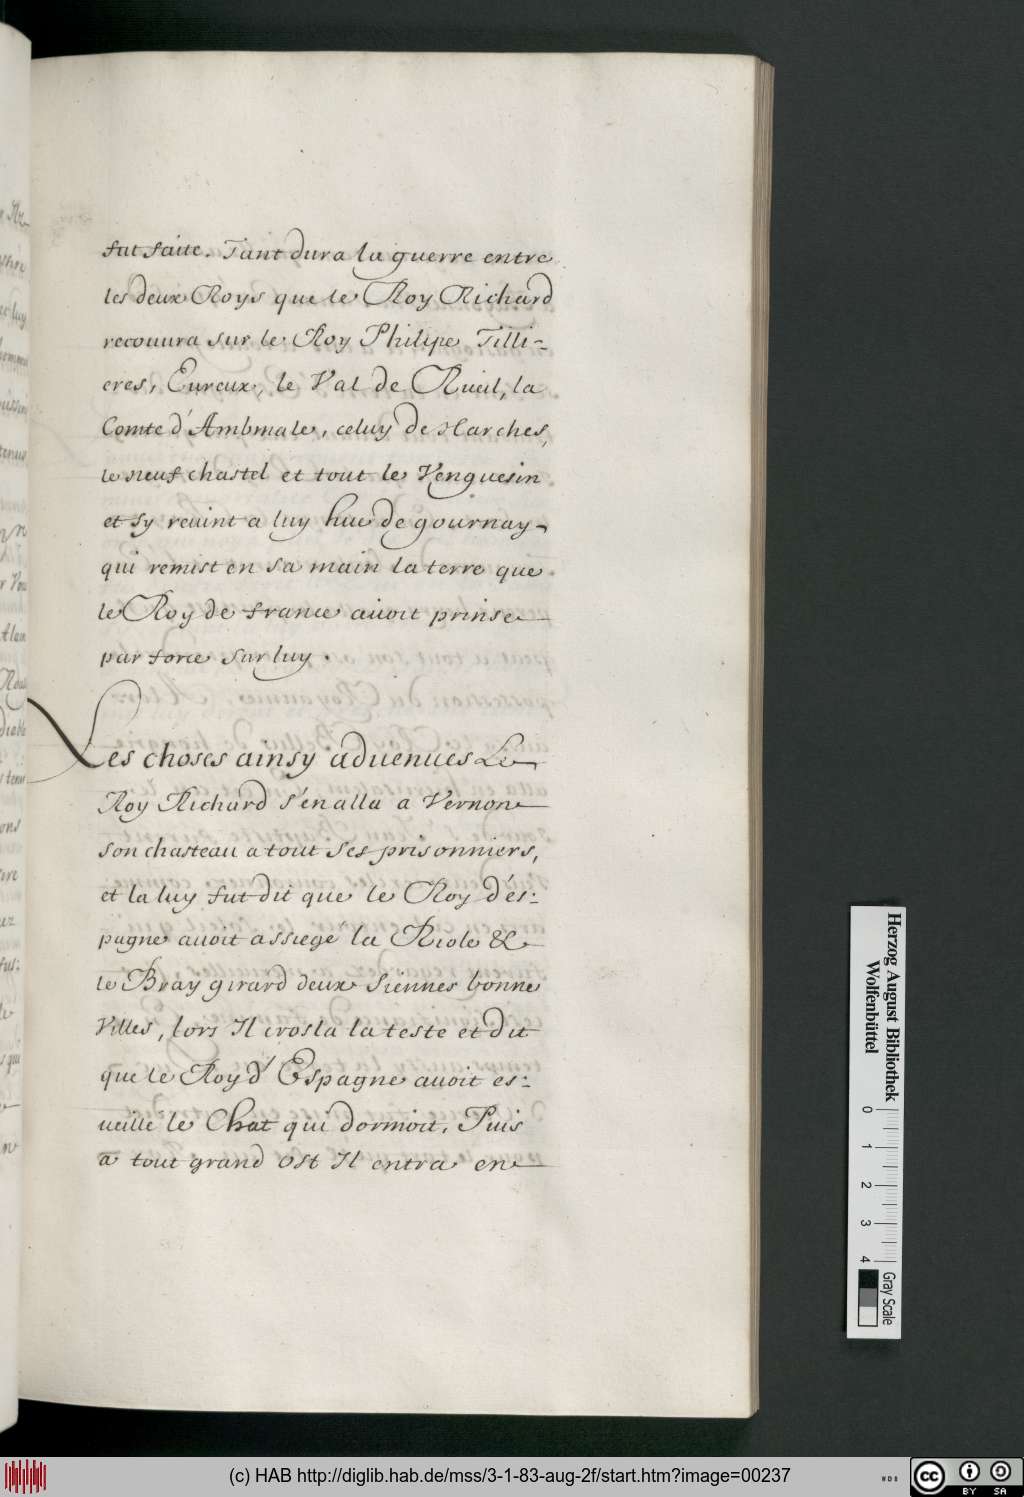 fut faite. Tant dura la guerre entre
les deux Roys que le Roy Richard
recouura sur le Roy Philipe Tilli-
eres, Eureux, le Val de Rueil, la
Comte d'Ambmale, celuy de Harches,
le neuf chastel et tout le Venguesin
et sy reuint a luy hue de gournay
qui remist en sa main la terre que
le Roy de france auoit prinse
par force sur luy.
Les choses ainsy aduenues Le
Roy Richard s'en alla a Vernon
son chasteau a tout ses prisonniers,
et la luy fut dit que le Roy d'és:
pagne auoit assiegé la Riole &
le Bray girard deux siennes bonne
Villes, lors Il crosla la teste et dit
que le Roy d'Espagne auoit es:
ueille le Chat qui dormoit. Puis
a tout grand ost Il entra en
Herzog August Bibliothek
Wolfenbüttel
0 1 2 3 4
Gray Scale
(c) HAB http://diglib.hab.de/mss/3-1-83-aug-2f/start.htm?image=00237
cc BY SA